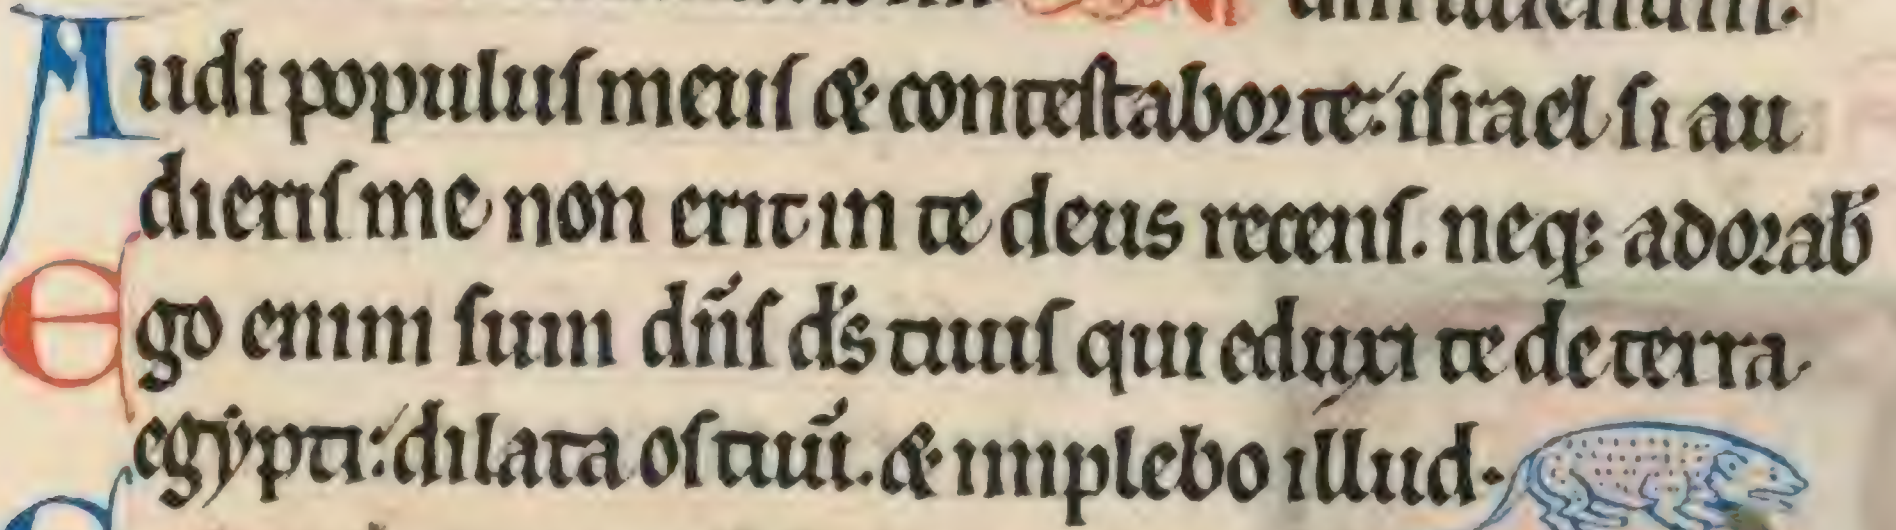 Audi populus meus & contestabor te: israel si au
dieris me non erit in te deus recens. neq; adorab̄
Ego enim sum dn̄s ds̄ tuus qui eduxi te de terra
egypti: dilata os tuū. & implebo illud.